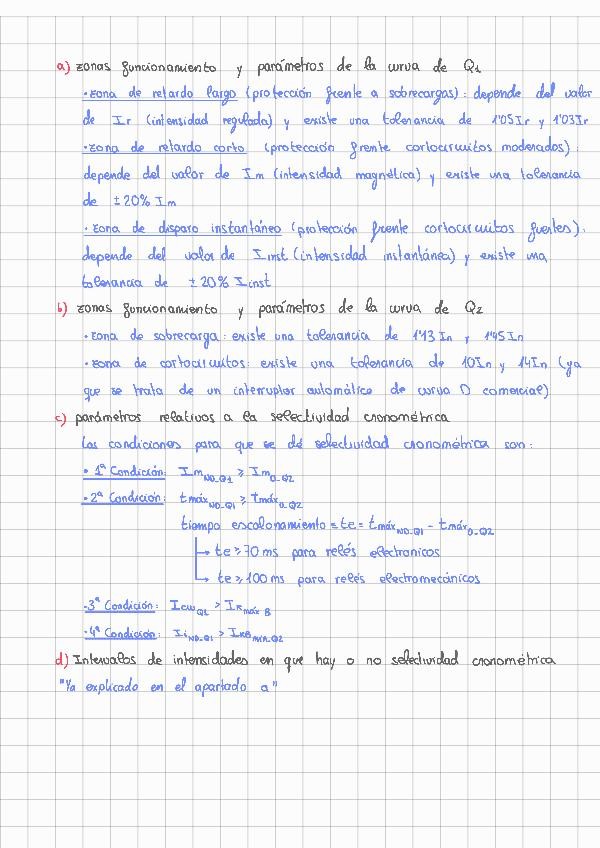 a) zonas funcionamiento y parámetros de la curva de Q1
· zona de retardo largo (protección frente a sobrecargas): depende del valor
de Ir (intensidad regulada) y existe una tolerancia de 1'05Ir y 1'03Ir
· zona de retardo corto (protección frente cortocircuitos moderados):
depende del valor de Im (intensidad magnética) y existe una tolerancia
de ±20% Im
· zona de disparo instantáneo (protección frente cortocircuitos fuertes):
depende del valor de Iinst (intensidad instantánea) y existe una
tolerancia de ±20% Iinst
b) zonas funcionamiento y parámetros de la curva de Q2
· zona de sobrecarga: existe una tolerancia de 1'13 In y 1'45 In
· zona de cortocircuitos: existe una tolerancia de 10In y 14In (ya
que se trata de un interruptor automático de curva D comercial)
c) parámetros relativos a la selectividad cronométrica
Las condiciones para que se dé selectividad cronométrica son:
· 1ª Condición: Im ND_Q1 ≥ Im D_Q2
· 2ª Condición: tmáx ND_Q1 ≥ tmáx D_Q2
tiempo escalonamiento = te = tmáx ND_Q1 - tmáx D_Q2
→ te ≥ 70 ms para relés electronicos
→ te ≥ 100 ms para relés electromecánicos
· 3ª Condición: Icw Q1 > Ik máx B
· 4ª Condición: Ii ND_Q1 > IkB mín_Q2
d) Intervalos de intensidades en que hay o no selectividad cronométrica
"Ya explicado en el apartado a"